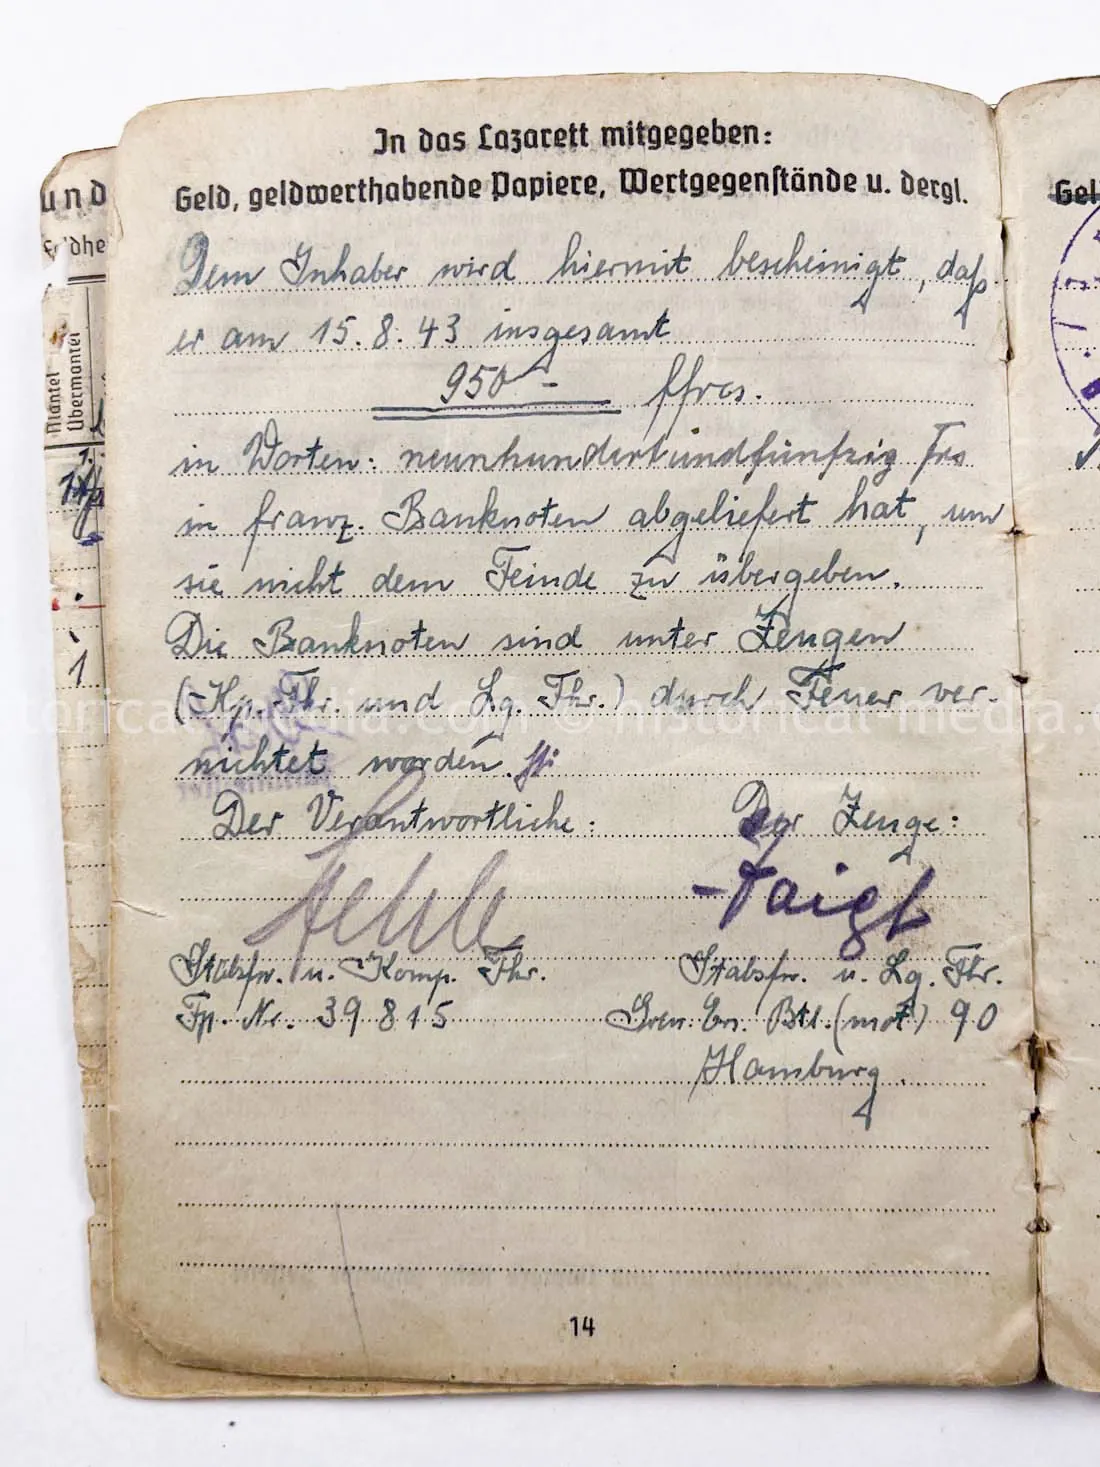 In das Lazarett mitgegeben:
Geld, geldwerthabende Papiere, Wertgegenstände u. dergl.
Dem Inhaber wird hiermit bescheinigt, daß
er am 15.8.43 insgesamt
950 - ffrcs.
in Worten: neunhundertundfünfzig Frs
in franz. Banknoten abgeliefert hat, um
sie nicht dem Feinde zu übergeben.
Die Banknoten sind unter Zeugen
(Kp. Fhr. und Lg. Fhr.) durch Feuer ver-
nichtet worden.
Der Verantwortliche: Der Zeuge:
Stabsfw. u. Komp. Fhr. Stabsfw. u. Lg. Fhr.
Fp. Nr. 39815 Gren. Ers. Btl. (mot) 90
Hamburg.
14
und
Mantel
Übermantel
1
Gel
historical-media.com © historical-media.